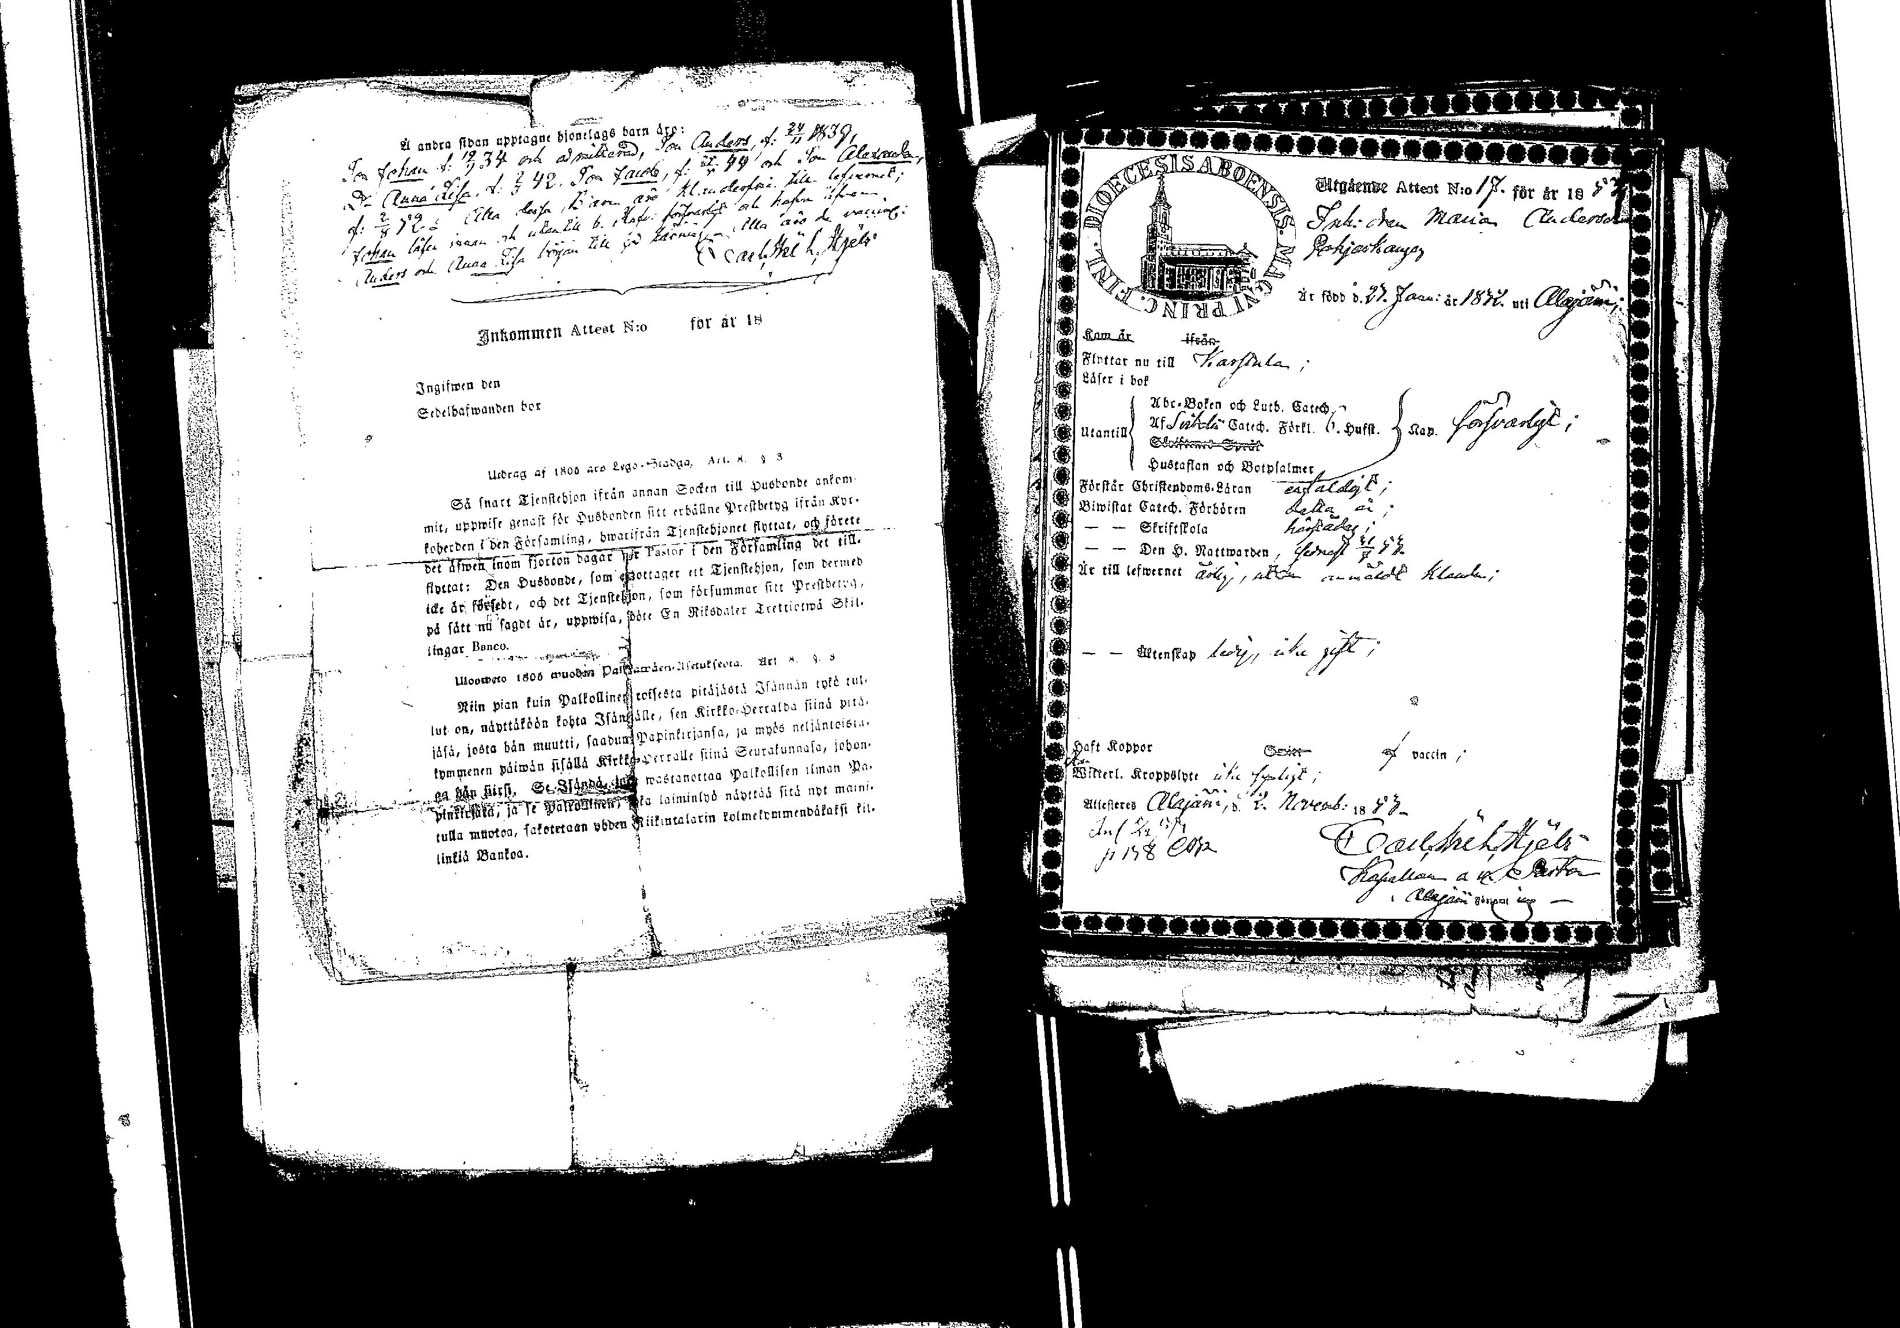 Å andra sidan upptagne hjonelags barn äro:
Son Johan f. 19/4 34 och admitterad, Son Anders, f: 24/11 1839,
Dr Anna Lisa, f: 2/5 42. Son Jacob, f: 44 och Son Alexander,
f: 2/8 52; Alla dessa barn äro till lefvernet;
Johan läser innan och utantill b. försvarligt och hafva
Anders och Anna Lisa början till Alla äro de vaccin:
Carl Wilh. Hjelt
Inkommen Attest N:o för år 18
Ingifwen den
Sedelhafwanden bor
Utdrag af 1805 års Lego-Stadga, Art. 8. § 3
Så snart Tjenstehjon ifrån annan Socken till Husbonde ankom-
mit, uppwise genast för Husbonden sitt erhållne Prestbetyg ifrån Kyr-
koherden i den Församling, hwarifrån Tjenstehjonet flyttat, och förete
det äfwen inom fjorton dagar för Pastor i den Församling det till-
flyttat: Den Husbonde, som emottager ett Tjenstehjon, som dermed
icke är försedt, och det Tjenstehjon, som försummar sitt Prestbetyg,
på sätt nu sagdt är, uppwisa, böte En Riksdaler Trettiotwå Skil-
lingar Banco.
Uloosweto 1805 wuoden Palkawäen-Asetuksesta. Art. 8. §. 3
Niin pian kuin Palkollinen toisesta pitäjästä Isännän tykö tul-
lut on, näyttäköön kohta Isännälle, sen Kirkko-Herralda siinä pitä-
jäsä, josta hän muutti, saadun Papinkirjansa, ja myös neljäntoista-
kymmenen päiwän sisällä Kirkko-Herralle siinä Seurakunnasa, johon-
ga hän siirsi. Se Isändä, joka wastanottaa Palkollisen ilman Pa-
pinkirjata, ja se Palkollinen, joka laiminlyö näyttää sitä nyt maini-
tulla muotoa, sakotetaan yhden Riikintalarin kolmekymmendäkaksi kil-
linkiä Bankoa.
FINL. DIOECESIS ABOENSIS. MAGNI PRINC.
Utgående Attest N:o 17. för år 18 52
Maria Andersdr
Är född d. 27. Janu: år 1832. uti Alajärvi;
Kom år ifrån
Flyttar nu till Karstula;
Läser i bok
Abc-Boken och Luth. Catech.
Utantill Af Catech. Förkl. 6. Hufst. Kap. försvarligt;
Skriftenes Språk
Hustaflan och Botpsalmer
Förstår Christendoms-Läran enfaldigt;
Biwistat Catech. Förhören detta år;
— — Skriftskola härstädes;
— — Den H. Nattwarden, senast 52
Är till lefwernet ärlig, utom anmäldt klander;
— — Äktenskap ledig, icke gift;
Haft Koppor af vaccin;
Witterl. Kroppslyte icke synligt;
Attesteras Alajärvi, d. 2. Novemb: 1852.
p 158
Carl Wilh. Hjelt
Kapellan Pastor
Alajärvi församling